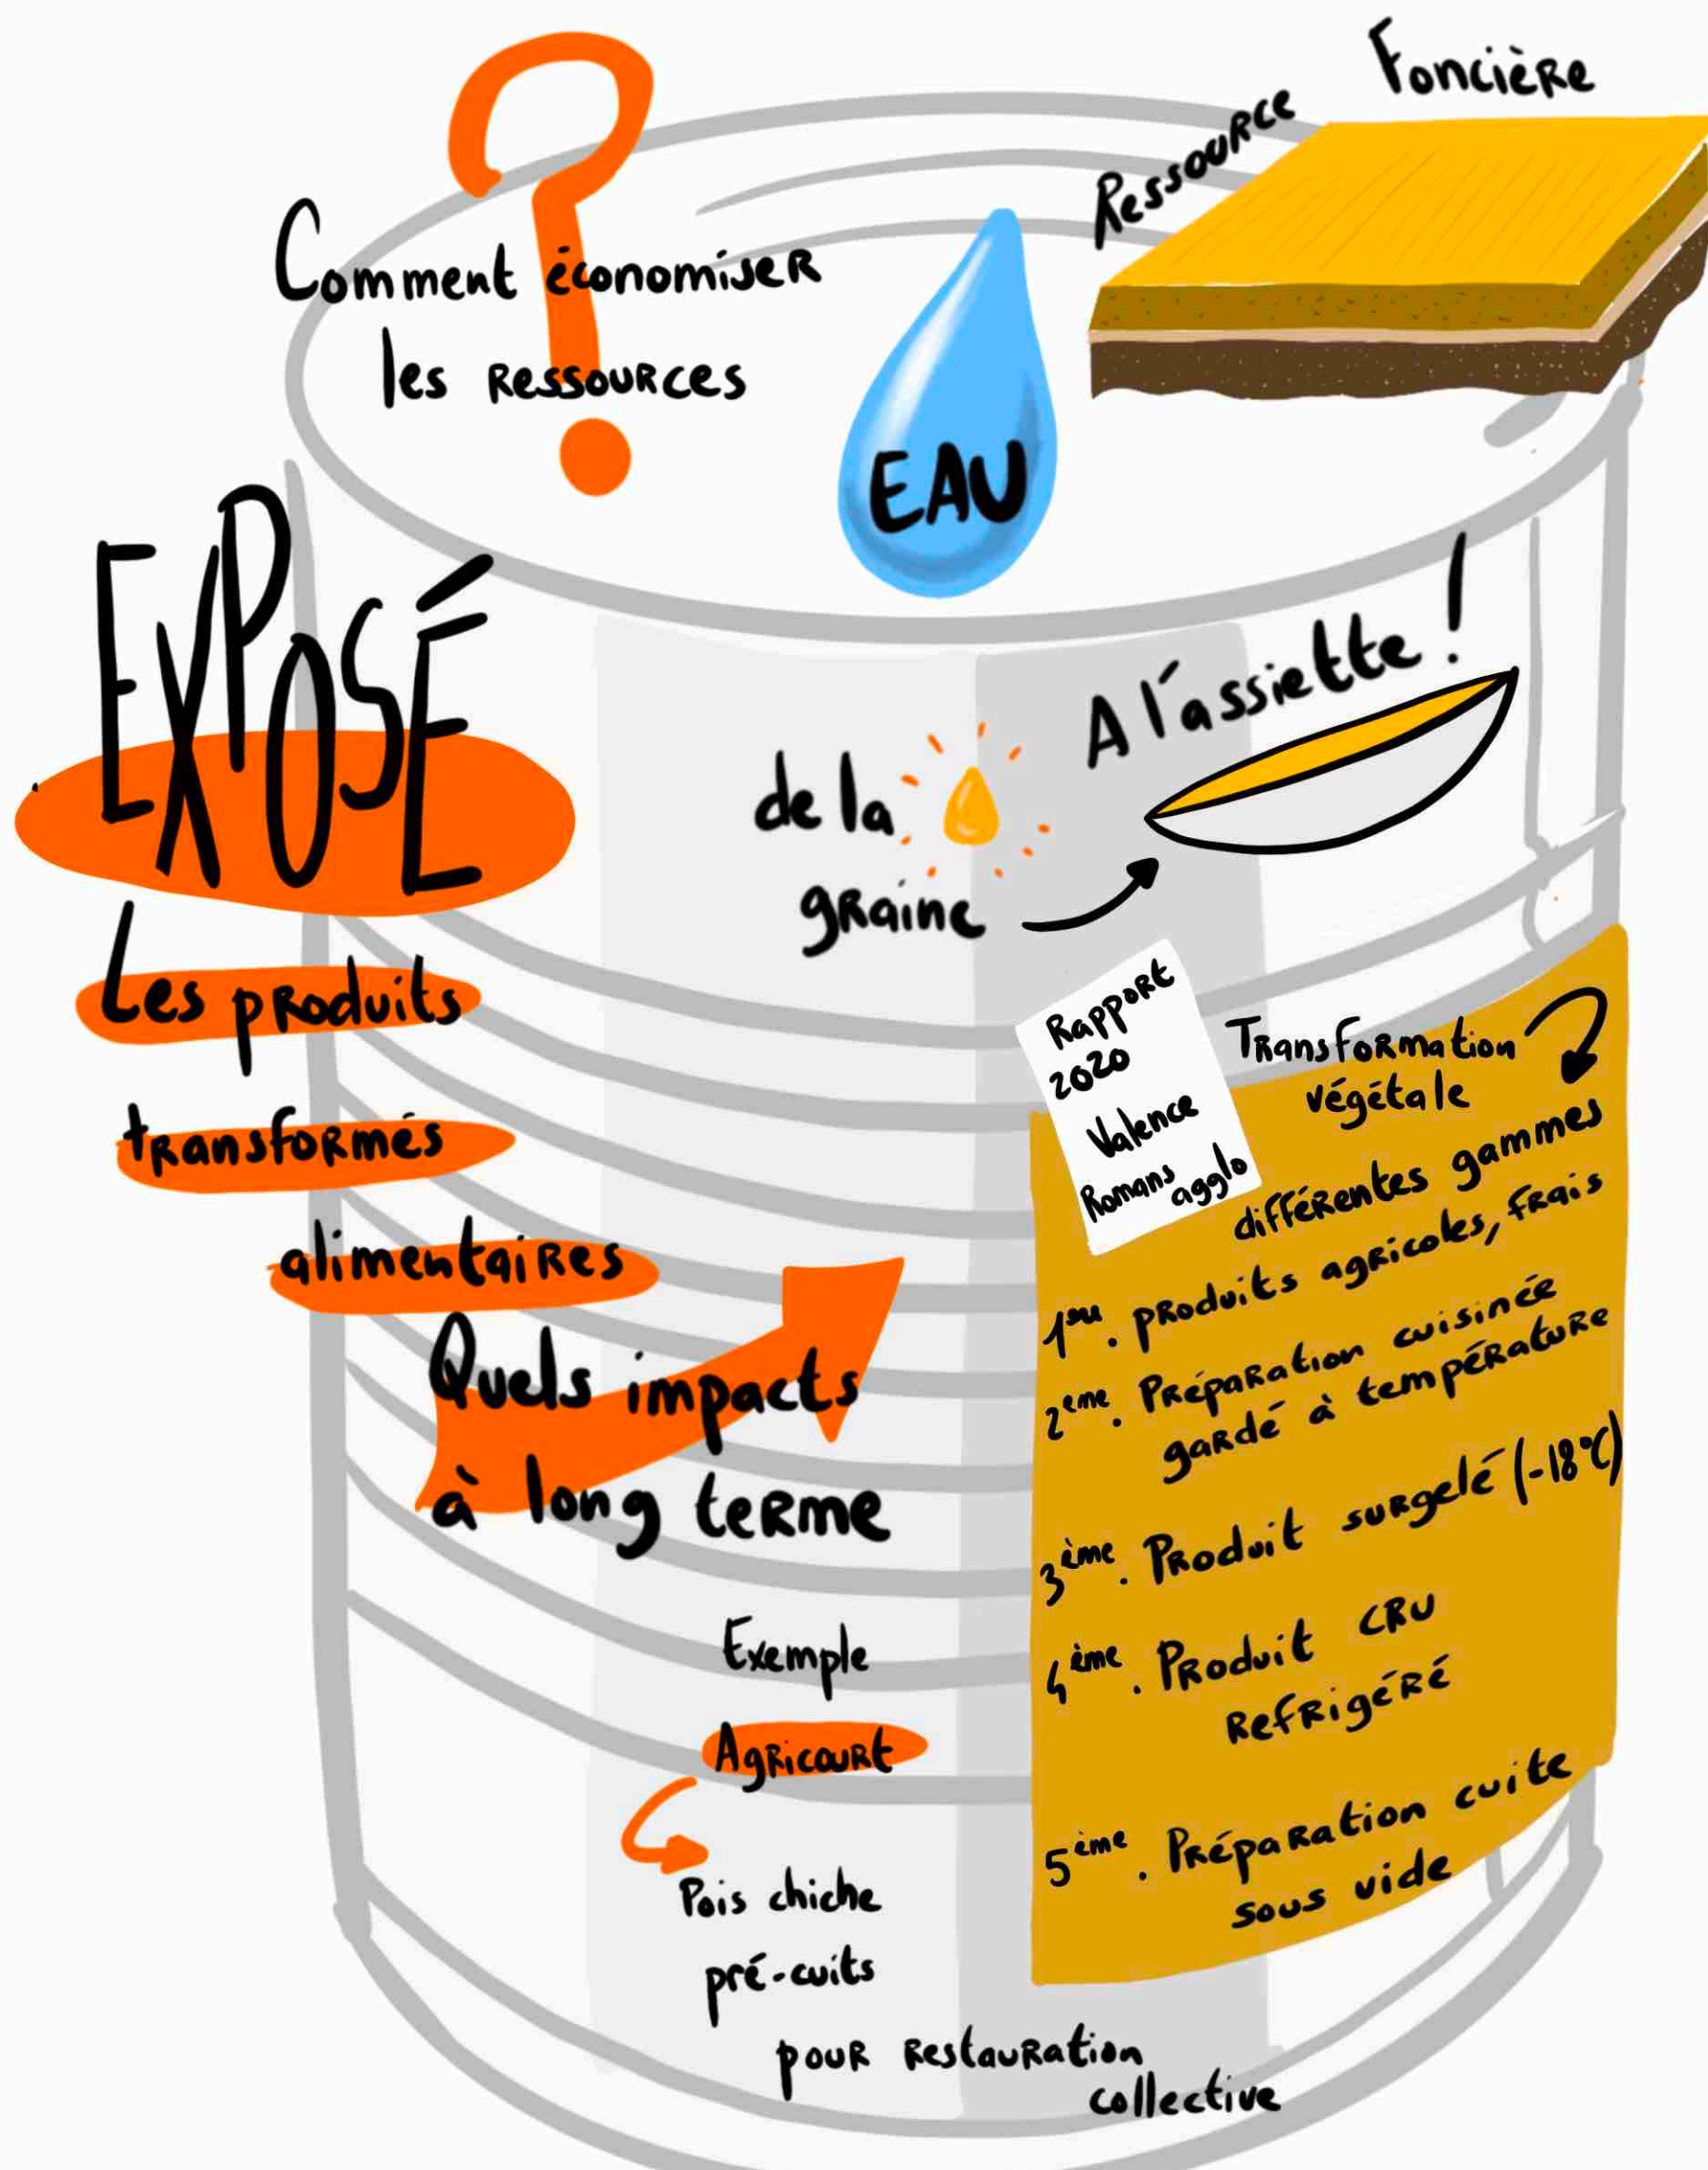 Comment économiser
les ressources
?
EAU
Ressource Foncière
EXPOSÉ
Les produits
transformés
alimentaires
Quels impacts
à long terme
de la
graine
A l'assiette !
Rapport
2020
Valence
Romans
agglo
Transformation
végétale
différentes gammes
1ère. produits agricoles, frais
2ème. Préparation cuisinée
gardé à température
3ème. Produit surgelé (-18°C)
4ème. Produit CRU
Refrigéré
5ème. Préparation cuite
sous vide
Exemple
Agricourt
Pois chiche
pré-cuits
pour restauration
collective